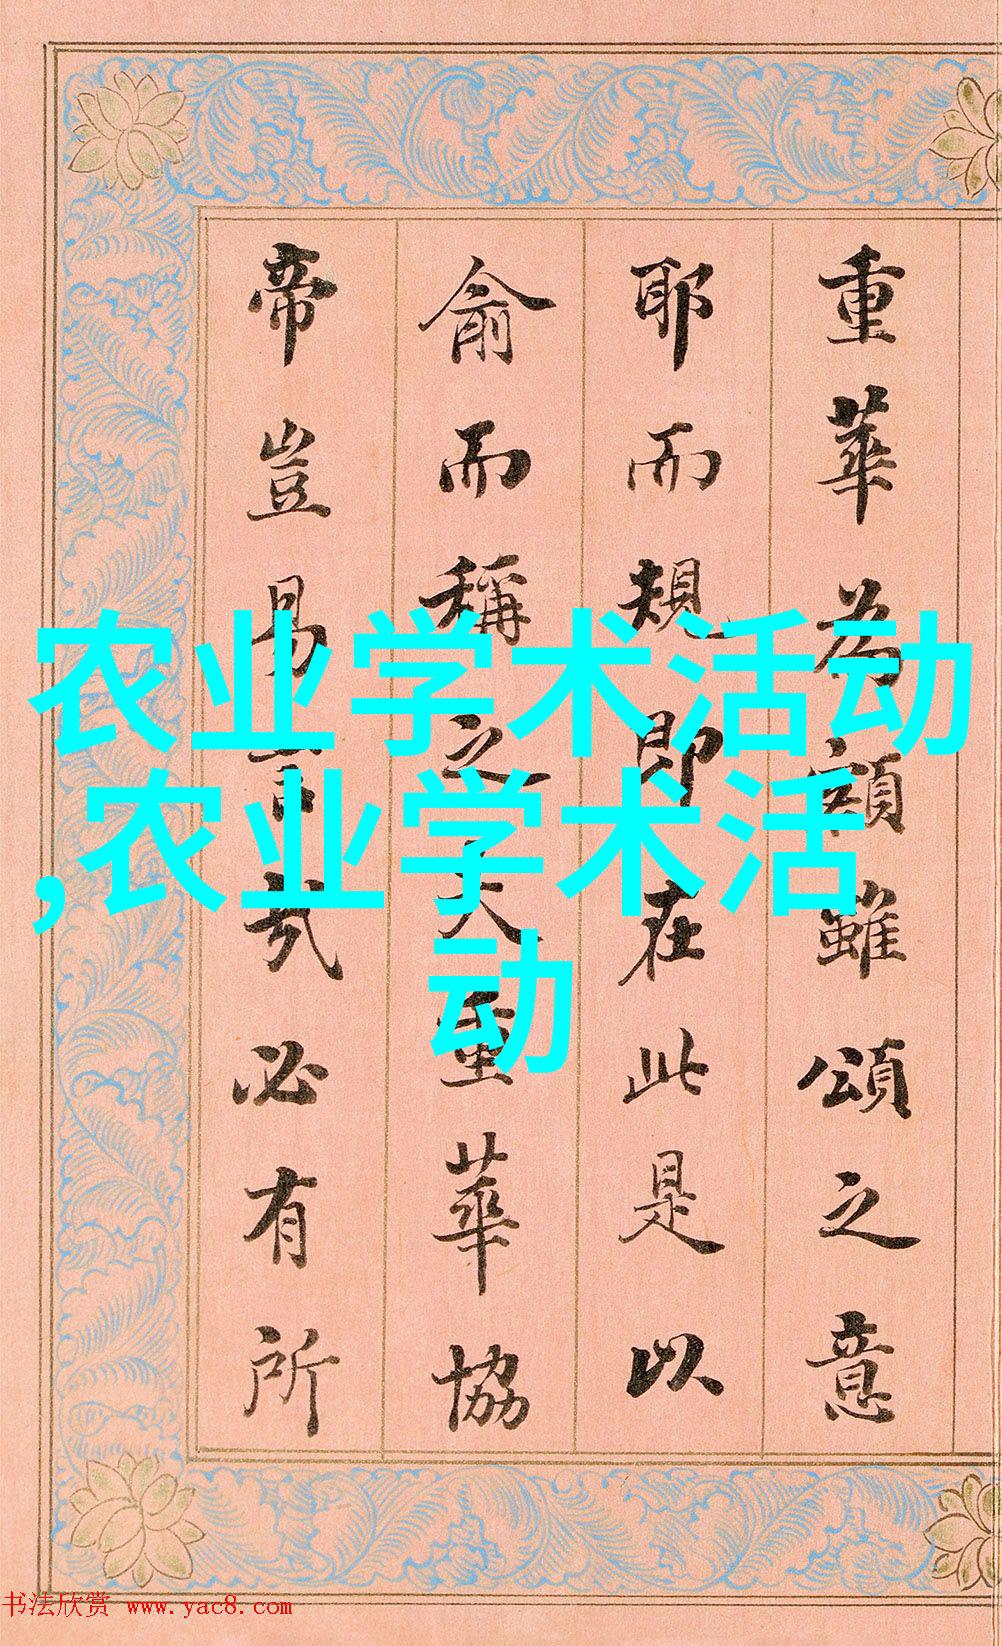 重華為額雖頌之意
耶而規即在此是以
俞而稱之夫重華協
帝豈易言哉必有所
农业学术活动
,农业学术活
动
书法欣赏 www.yac8.com